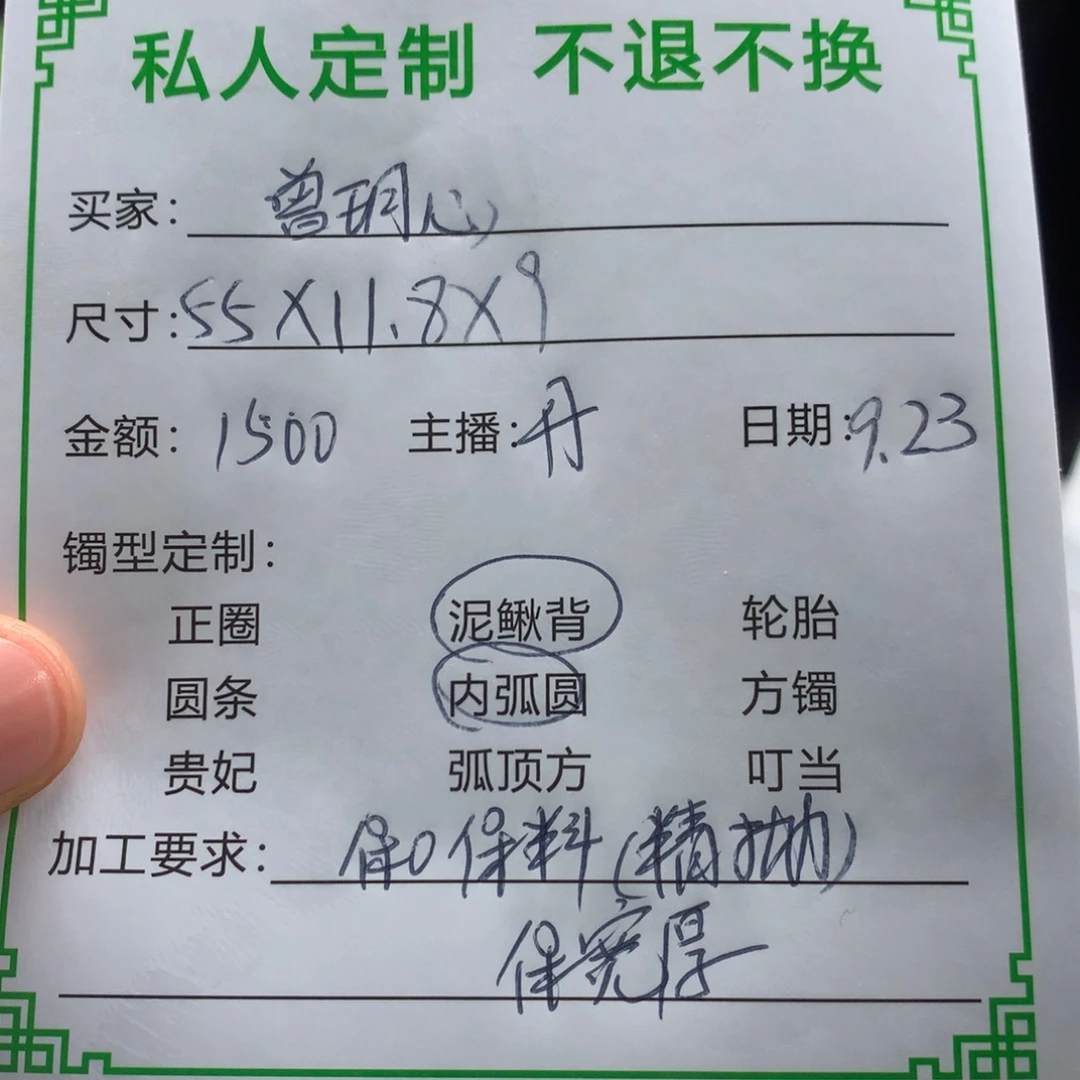 私人定制 不退不换
买家: 曾玥心
尺寸: 55X11.8X9
金额: 1500 主播: 丹 日期: 9.23
镯型定制:
正圈 泥鳅背 轮胎
圆条 内弧圆 方镯
贵妃 弧顶方 叮当
加工要求: 保口保料(精抛)
保宽厚